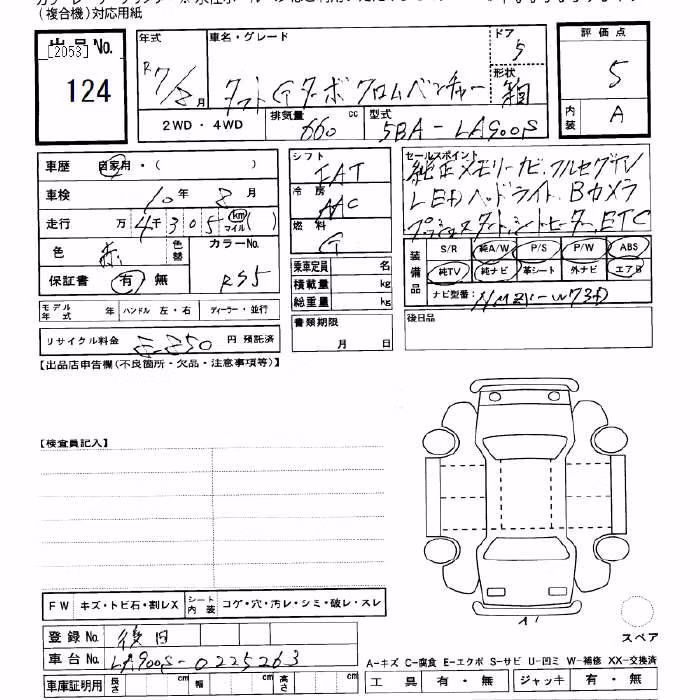 (複合機)対応用紙
出品 No. [2053]
124
年式 R7/2月
車名・グレード タフト Gターボ クロムベンチャー
ドア 5
形状 箱
評価点 5
内装 A
2WD・4WD
排気量 660 cc
型式 5BA-LA900S
車歴 自家用・( )
車検 10年 2月
走行 万 4千 3 0 5 km マイル ( )
色 赤 色替
カラーNo. R55
保証書 有 無
シフト FAT
冷房 AAC
燃料 G
乗車定員 名
積載量 kg
総重量 kg
書類期限
月 日
セールスポイント
純正メモリーナビ、フルセグTV
LEDヘッドライト、Bカメラ
プッシュスタート、シートヒーター、ETC
装備品 S/R 純A/W P/S P/W ABS
純TV 純ナビ 革シート 外ナビ エアB
ナビ型番: NMZK-W73D
後日品
モデル年式 年 ハンドル 左・右 ディーラー・並行
リサイクル料金 円 預託済
【出品店申告欄(不良箇所・欠品・注意事項等)】
【検査員記入】
FW キズ・トビ石・割レX シート内装 コゲ・穴・汚レ・シミ・破レ・スレ
登録 No. 後日
車台 No. LA900S-0225263
車庫証明用 長さ cm 幅 cm 高さ cm
スペア
A-キズ C-腐食 E-エクボ S-サビ U-凹ミ W-補修 XX-交換済
工具 有・無 ジャッキ 有・無